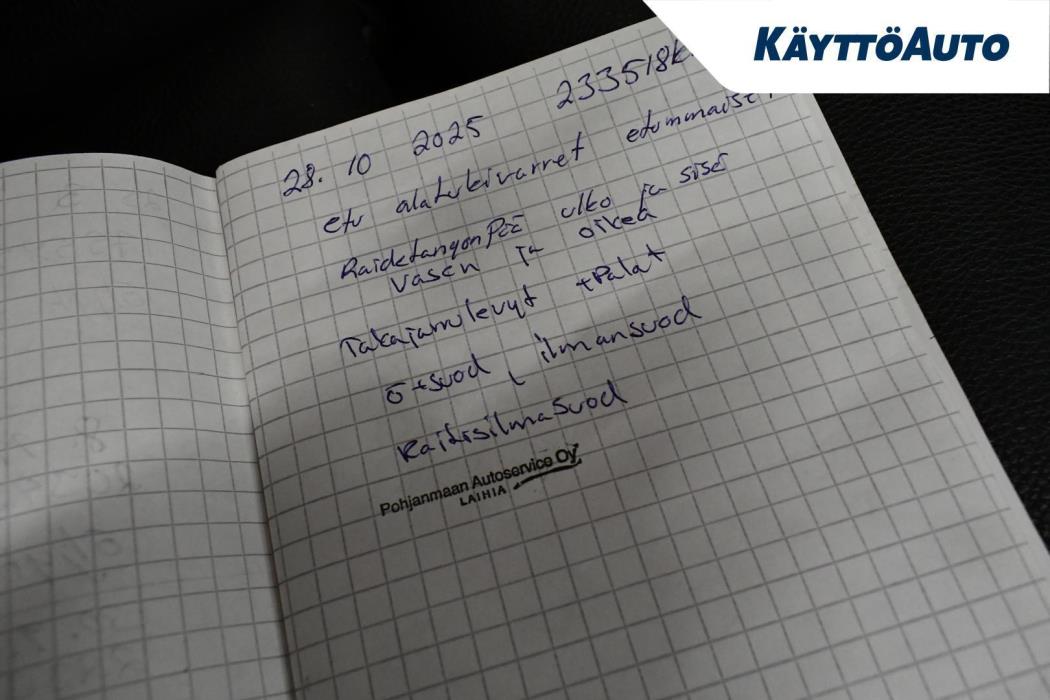 KÄYTTÖAUTO
28. 10 2025 233518k
etu alatukivarret etummaiset
Raidetangon Pää ulko ja sisä
vasen ja oikea
Takajarrulevyt + Palat
ö+suod, ilmansuod
Raitisilmasuod
Pohjanmaan Autoservice Oy
LAIHIA